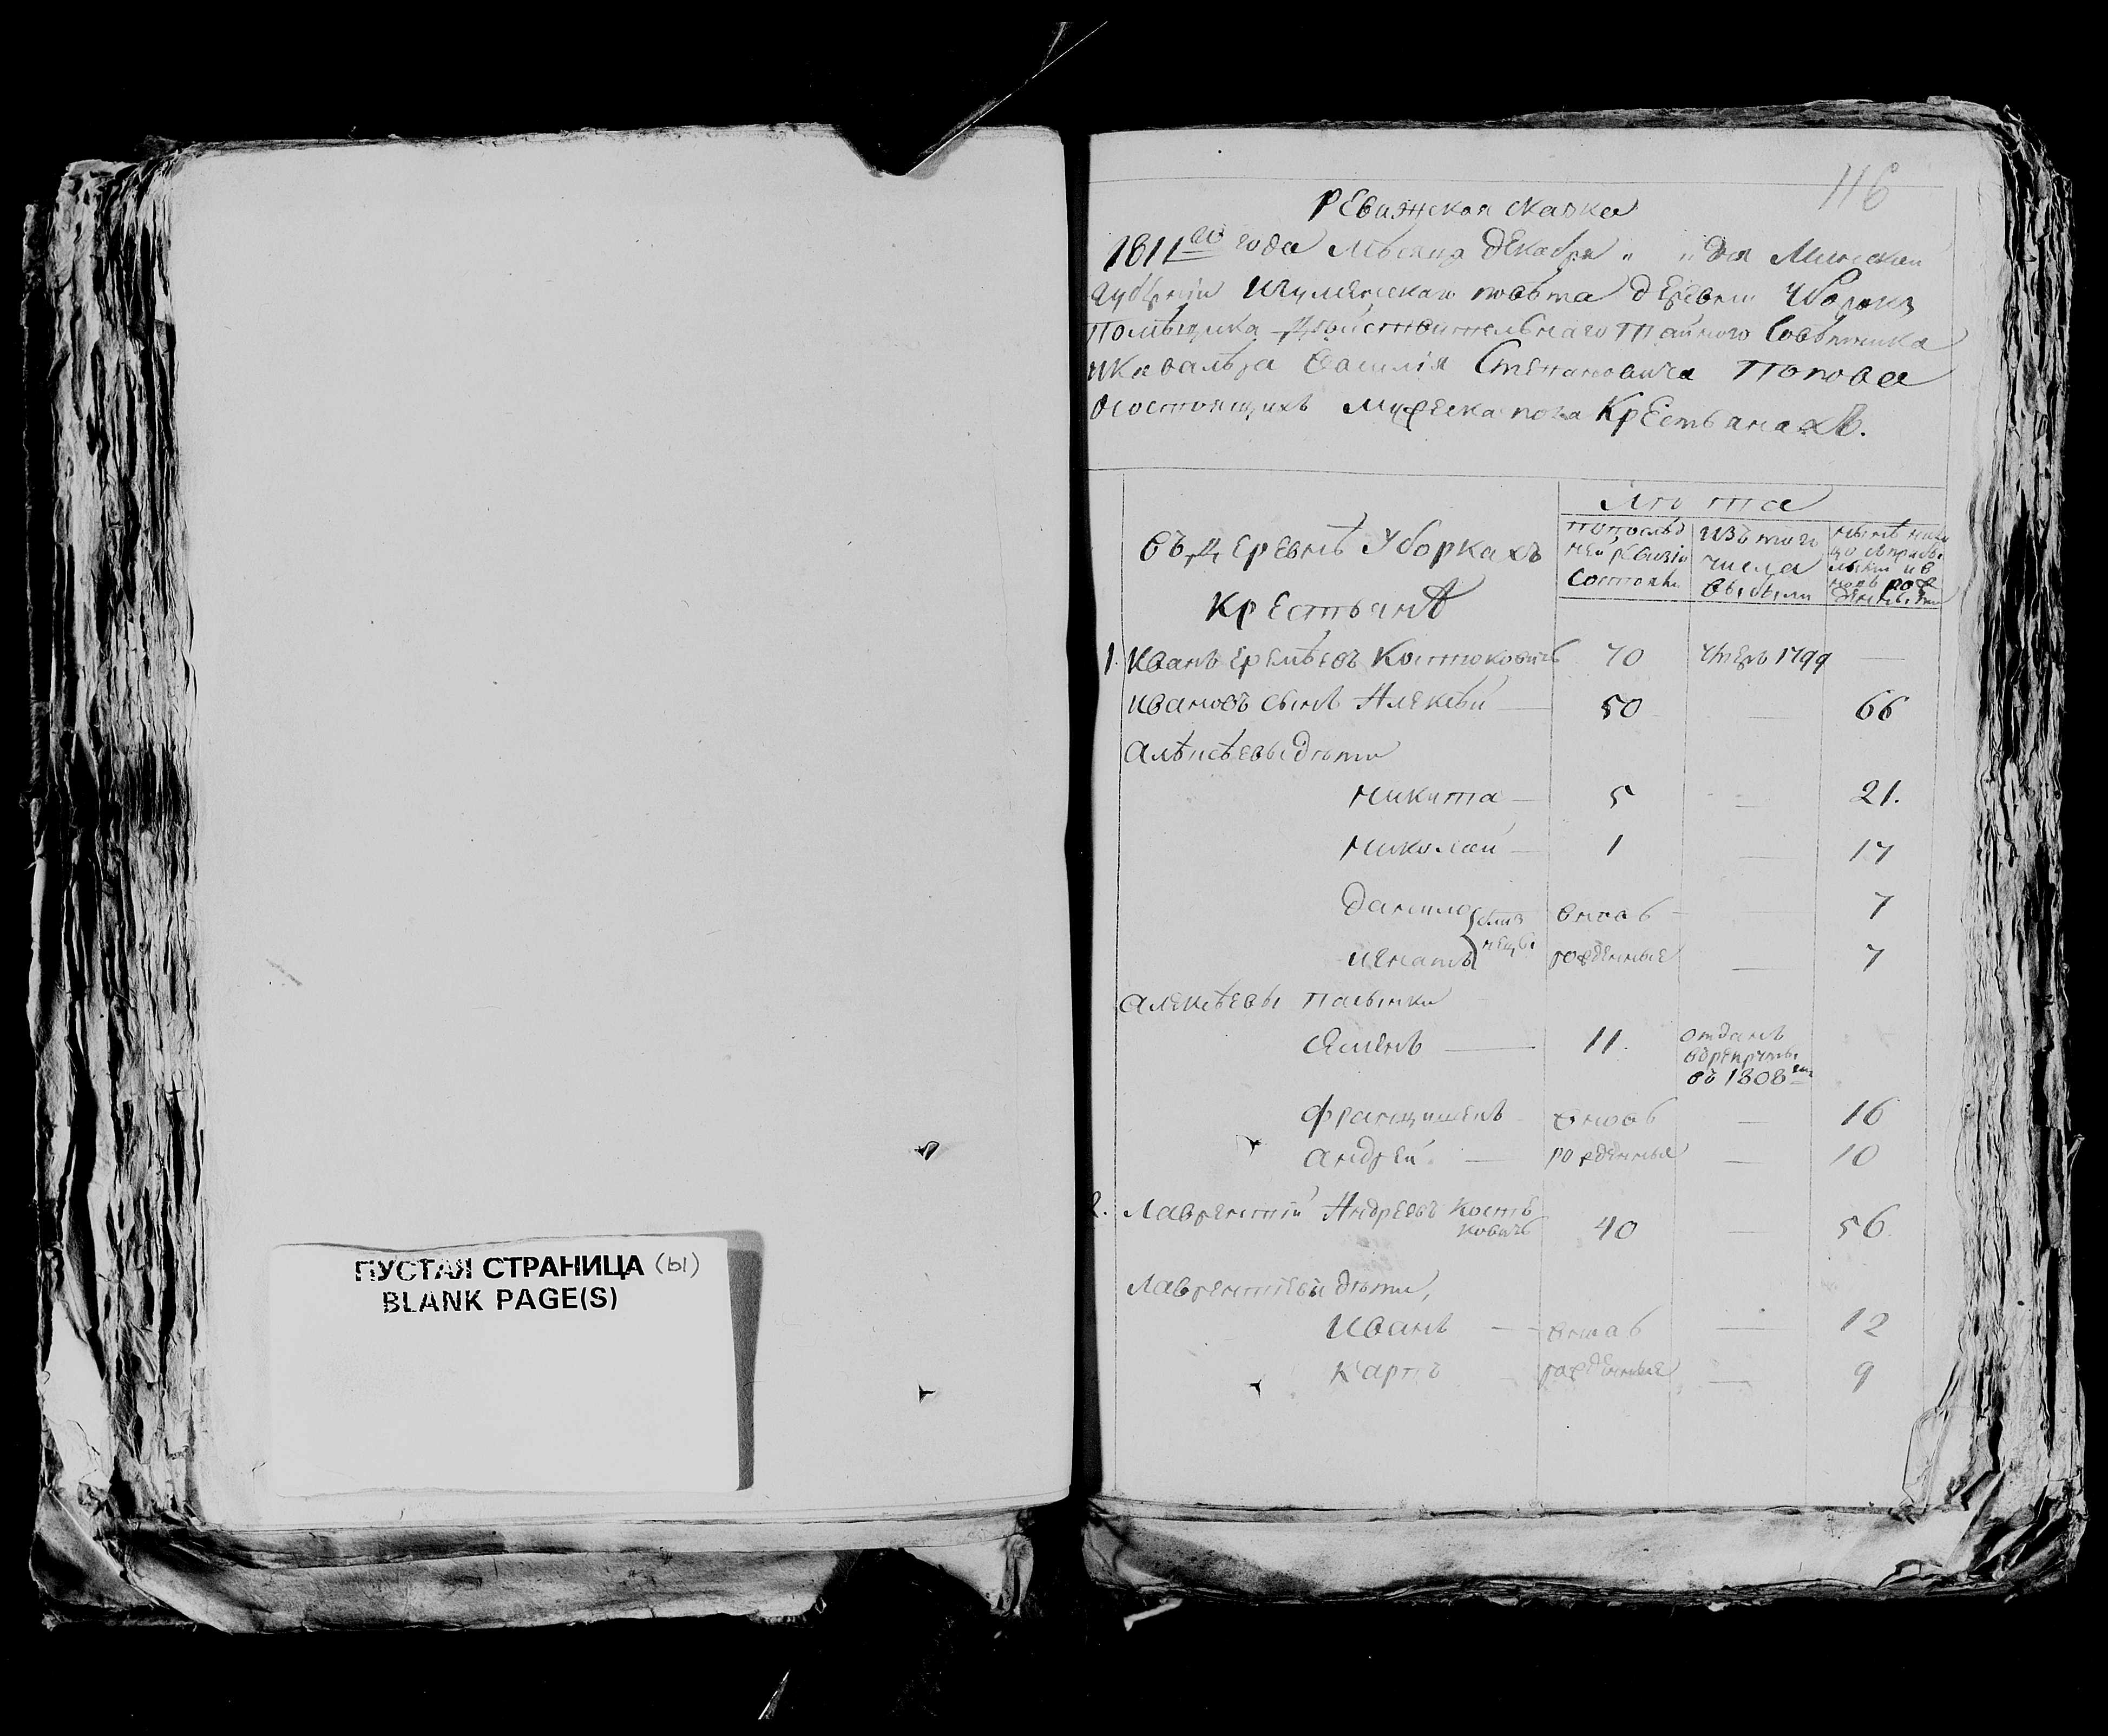 ПУСТАЯ СТРАНИЦА (ы)
BLANK PAGE(S)
116
Ревижская скаска
1811го года мѣсяца декабря " " дня Минской
губернии Игуменскаго повѣта деревни Уборокъ
помѣщика Дѣйствительнаго Тайного Совѣтника
и Кавалѣра Василія Степановича Попова
о состоящихъ мужеска пола Крестьянахъ.
Лѣта
въ Деревнѣ Уборкахъ
Крестьянъ
по послѣд
ней ревизіи
состояли
изъ того
числа
выбыли
нынѣ
1. Иванъ Еремѣевъ Костюковичъ 70 умеръ 1799 —
Ивановъ сынъ Алексѣй — 50 — 66
Алѣксѣевы дѣти
Никита — 5 — 21.
Николай — 1 — 17
Данило близ вновь — 7
Игнатъ нецы рожденные — 7
Алексѣевы пасынки
Семенъ — 11. отданъ
въ рекруты
въ 1808
Францишекъ вновь — 16
Андрей — рожденныя — 10
2. Лаврентий Андреевъ Костю
ковичъ 40 — 56
Лаврентиевы дѣти,
Иванъ — вновь — 12
Карпъ рожденные — 9